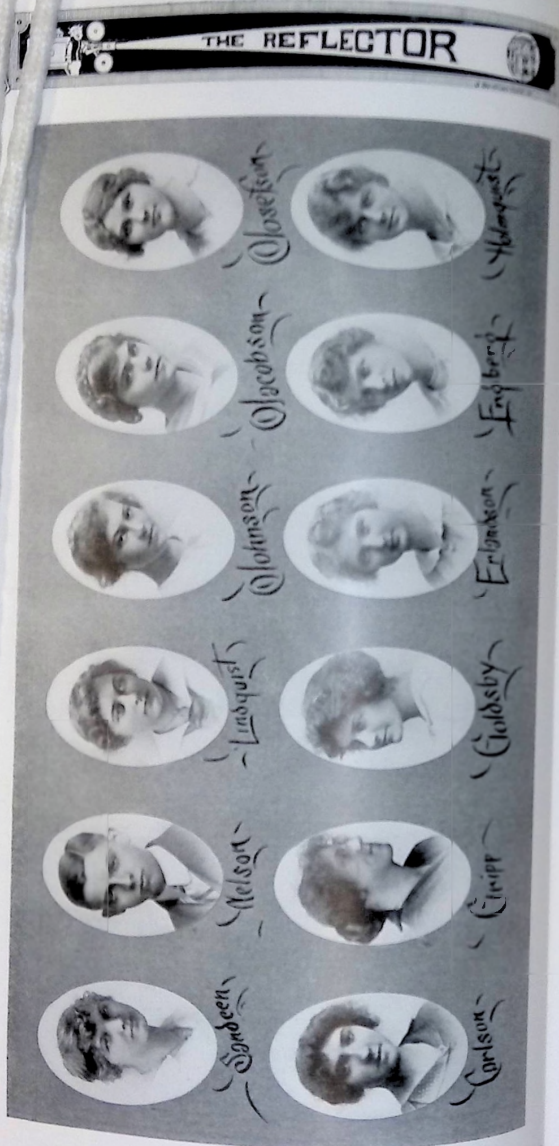 THE REFLECTOR
Sandeen
Nelson
Lindquist
Johnson
Jacobson
Josefson
Carlson
Gripp
Goldsby
Erlandson
Engberg
Holmquist